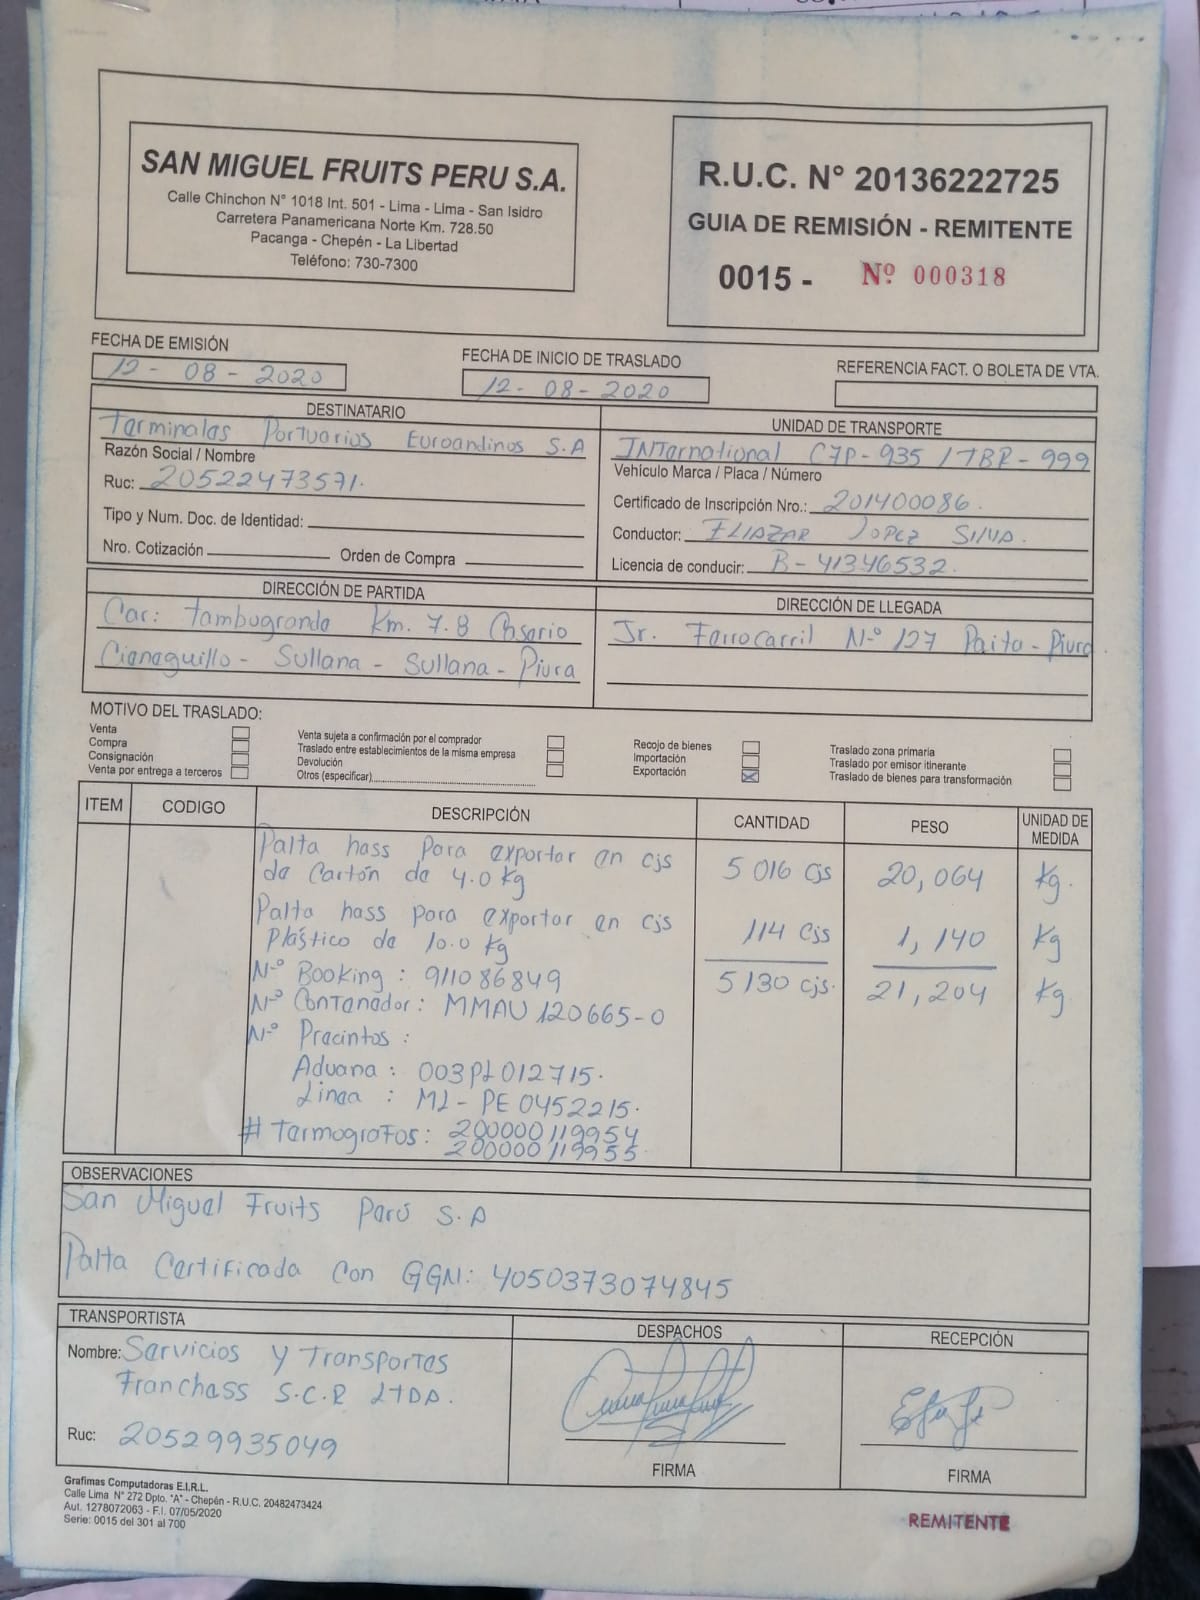 SAN MIGUEL FRUITS PERU S.A.
Calle Chinchon N° 1018 Int. 501 - Lima - Lima - San Isidro
Carretera Panamericana Norte Km. 728.50
Pacanga - Chepén - La Libertad
Teléfono: 730-7300
R.U.C. N° 20136222725
GUIA DE REMISIÓN - REMITENTE
0015 - Nº 000318
FECHA DE EMISIÓN
12 - 08 - 2020
FECHA DE INICIO DE TRASLADO
12 - 08 - 2020
REFERENCIA FACT. O BOLETA DE VTA.
DESTINATARIO
Terminales Portuarios Euroandinos S.A
Razón Social / Nombre
Ruc: 20522473571.
Tipo y Num. Doc. de Identidad:
Nro. Cotización Orden de Compra
UNIDAD DE TRANSPORTE
INTernational C7P-935 / TBR-999
Vehículo Marca / Placa / Número
Certificado de Inscripción Nro.: 201400086.
Conductor: ELIAZAR LOPEZ SILVA.
Licencia de conducir: B-41346532.
DIRECCIÓN DE PARTIDA
Car: Tambogrande Km. 7.8 Caserio
Cieneguillo - Sullana - Sullana - Piura
DIRECCIÓN DE LLEGADA
Jr. Ferrocarril N° 127 Paita - Piura
MOTIVO DEL TRASLADO:
Venta
Compra
Consignación
Venta por entrega a terceros
Venta sujeta a confirmación por el comprador
Traslado entre establecimientos de la misma empresa
Devolución
Otros (especificar)
Recojo de bienes
Importación
Exportación
Traslado zona primaria
Traslado por emisor itinerante
Traslado de bienes para transformación
ITEM CODIGO DESCRIPCIÓN CANTIDAD PESO UNIDAD DE MEDIDA
Palta hass Para exportar en cjs
de Cartón de 4.0 Kg 5 016 cjs 20,064 Kg.
Palta hass para exportar en cjs
Plástico de 10.0 Kg 114 cjs 1,140 Kg
N° Booking : 911086849 5130 cjs. 21,204 Kg
N° Contenedor : MMAU 120665-0
N° Precintos :
Aduana : 003PL012715.
Linea : ML-PE 0452215.
# Termografos : 200000119954
200000119955.
OBSERVACIONES
San Miguel Fruits Perú S.A
Palta Certificada con GGN: 4050373074845
TRANSPORTISTA
Nombre: Servicios y Transportes
Franchess S.C.R LTDA.
Ruc: 20529935049
DESPACHOS
FIRMA
RECEPCIÓN
FIRMA
Grafimas Computadoras E.I.R.L.
Calle Lima N° 272 Dpto. "A" - Chepén - R.U.C. 20482473424
Aut. 1278072063 - F.I. 07/05/2020
Serie: 0015 del 301 al 700
REMITENTE